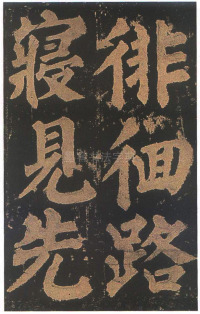 徘徊路
寝見先